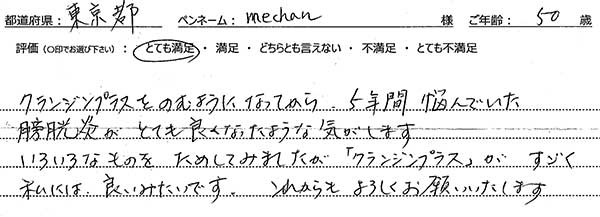 都道府県：東京都 ペンネーム：mechan 様 ご年齢：50 歳
評価（○印でお選び下さい）：とても満足・満足・どちらとも言えない・不満足・とても不満足
クランジンプラスをのむようになってから、5年間 悩んでいた
膀胱炎が とても良くなったような気がします
いろいろなものを ためしてみましたが「クランジンプラス」が すごく
私には、良いみたいです。 これからも よろしくお願いいたします